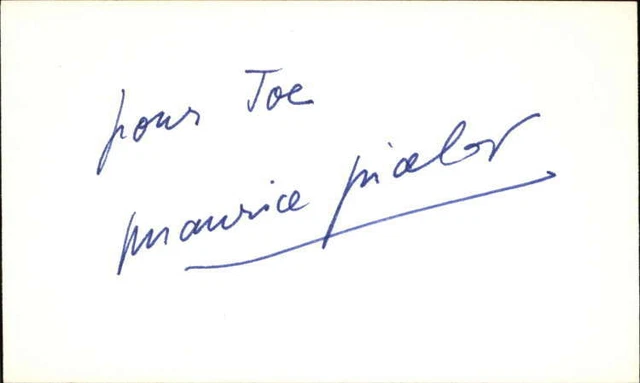 pour Joe
Maurice Pialat